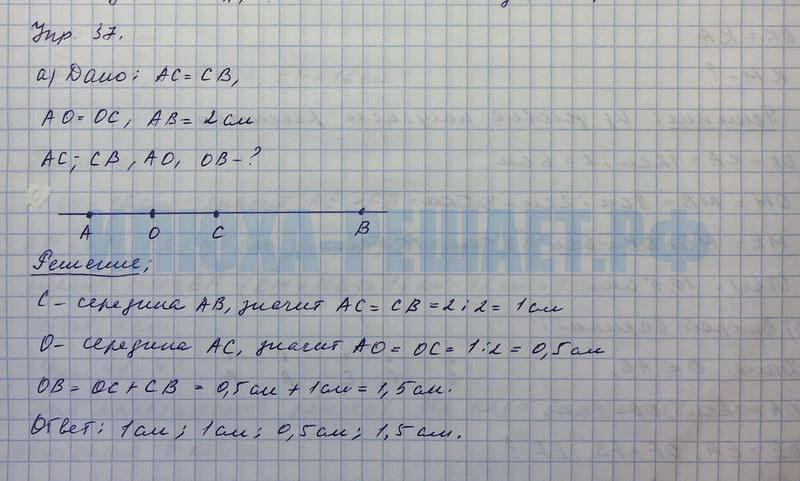 Упр. 37.
а) Дано: AC = CB,
AO = OC, AB = 2 см
AC; CB, AO, OB - ?
A O C B
ИПЮХА-РЕШАЕТ.РФ
Решение;
C - середина AB, значит AC = CB = 2 : 2 = 1 см
O - середина AC, значит AO = OC = 1 : 2 = 0,5 см
OB = OC + CB = 0,5 см + 1 см = 1,5 см.
Ответ: 1 см; 1 см; 0,5 см; 1,5 см.